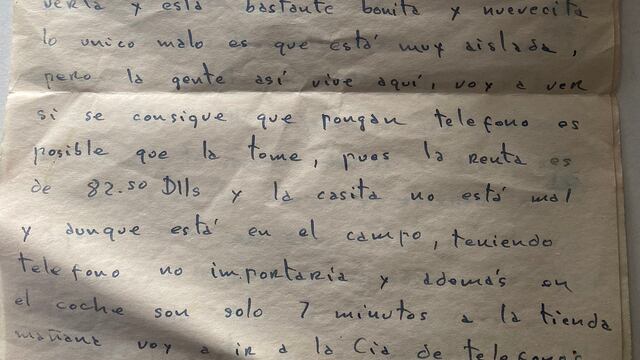 verla y está bastante bonita y nuevecita
lo unico malo es que está muy aislada,
pero la gente así vive aquí, voy a ver
si se consigue que pongan telefono es
posible que la tome, pues la renta es
de 82.50 Dlls y la casita no está mal
y aunque está en el campo, teniendo
telefono no importaria y además en
el coche son solo 7 minutos a la tienda
mañana voy a ir a la Cia de telefonos